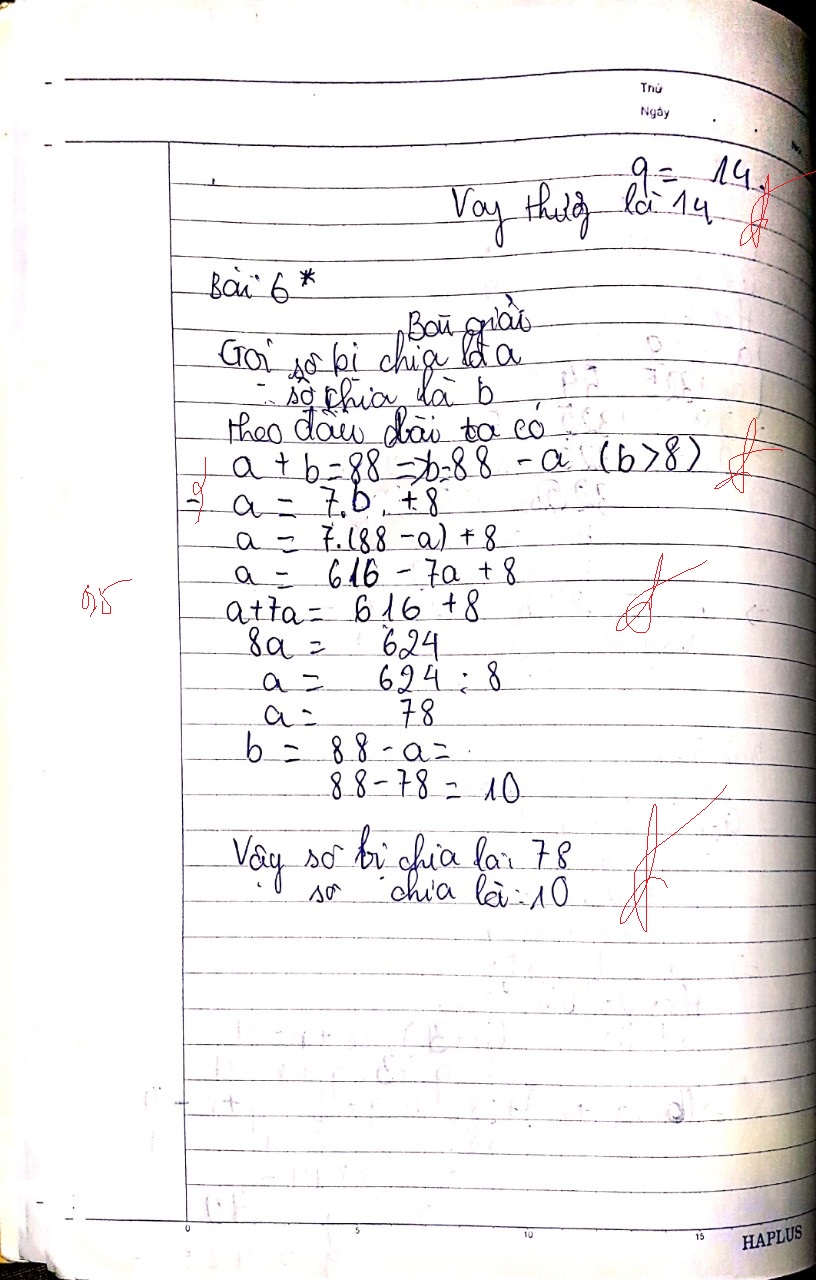 Thứ
Ngày
q = 14.
Vay thương là 14
Bài 6*
Bài giải
Gọi số bị chia là a
số chia là b
theo đầu bài ta có
a + b = 88 => b = 88 - a (b > 8)
a = 7.b + 8
a = 7.(88 - a) + 8
a = 616 - 7a + 8
a + 7a = 616 + 8
8a = 624
a = 624 : 8
a = 78
b = 88 - a =
88 - 78 = 10
Vậy số bị chia là: 78
số chia là: 10
0 5 10 15
HAPLUS